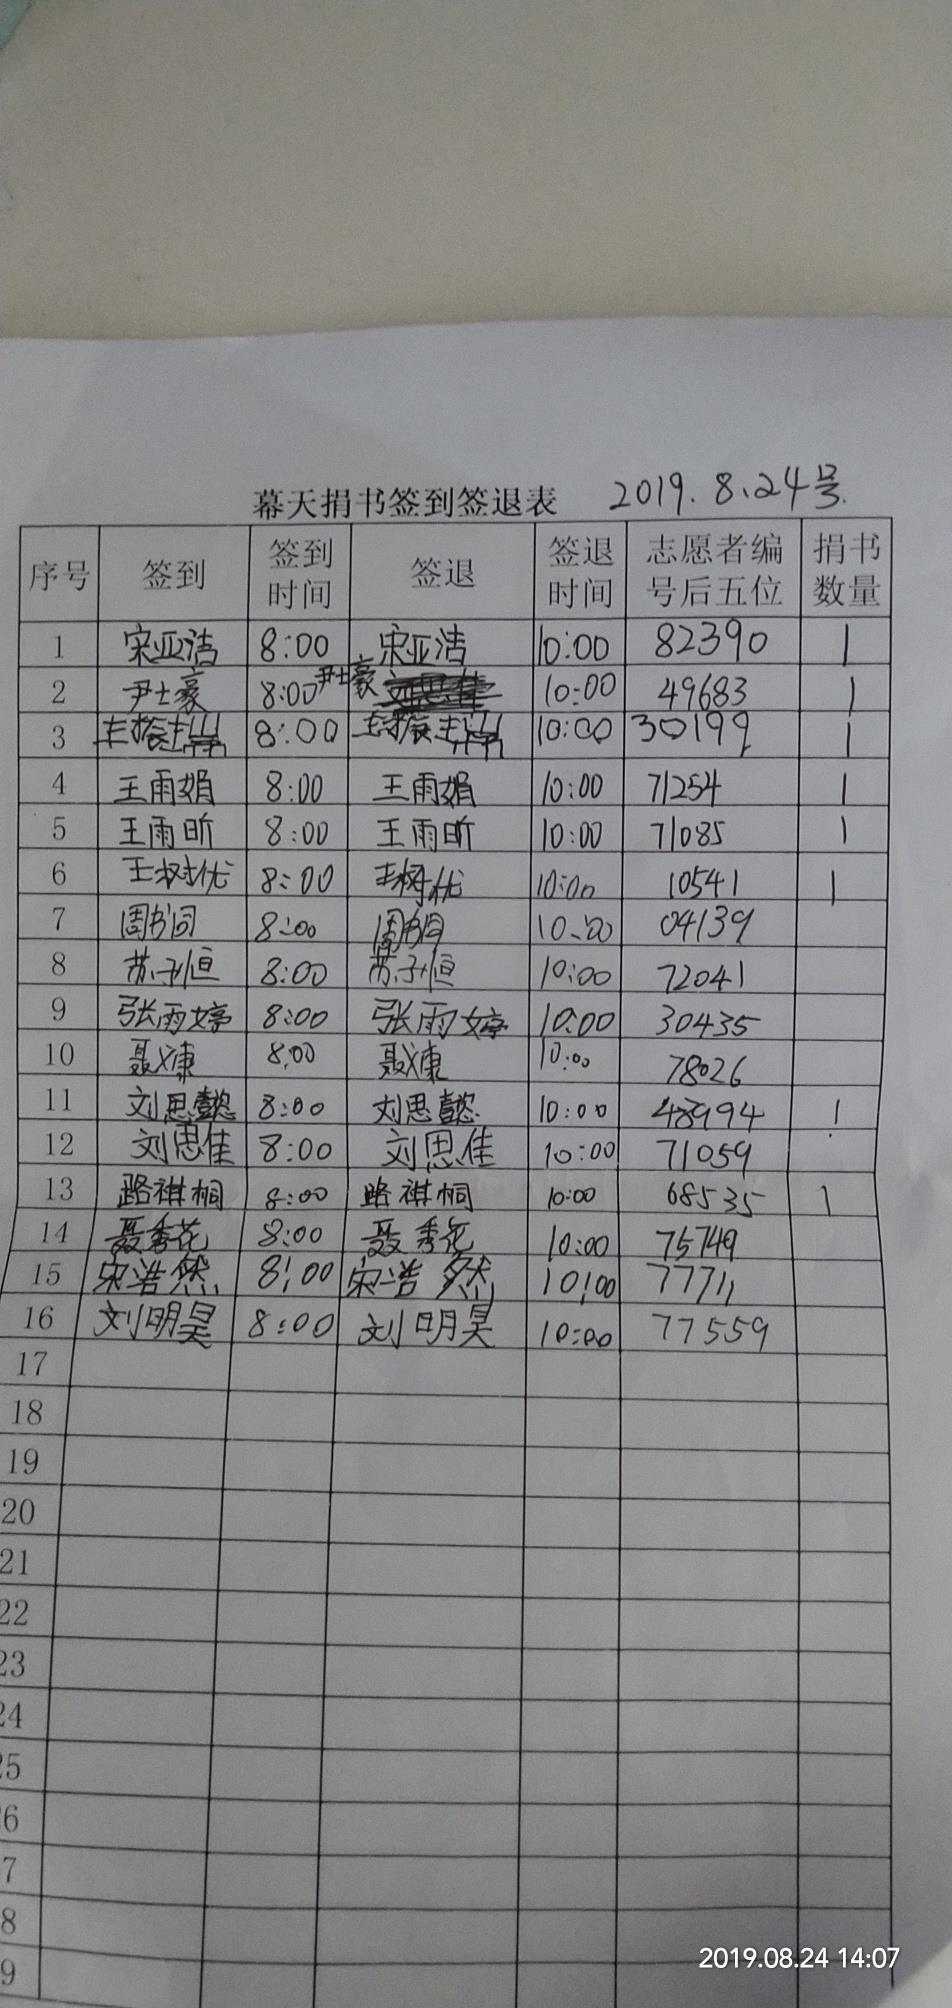 幕天捐书签到签退表 2019.8.24号.
序号 签到 签到时间 签退 签退时间 志愿者编号后五位 捐书数量
1 宋亚洁 8:00 宋亚洁 10:00 82390 1
2 尹士豪 8:00 尹士豪 10:00 49683 1
3 8:00 10:00 30199 1
4 王雨娟 8:00 王雨娟 10:00 71254 1
5 王雨昕 8:00 王雨昕 10:00 71085 1
6 王树优 8:00 王树优 10:00 10541 1
7 8:00 10:00 04139
8 苏子恒 8:00 苏子恒 10:00 72041
9 张雨婷 8:00 张雨婷 10:00 30435
10 聂康 8:00 聂康 10:00 78026
11 刘思懿 8:00 刘思懿 10:00 48994 1
12 刘思佳 8:00 刘思佳 10:00 71059
13 路祺桐 8:00 路祺桐 10:00 68535 1
14 聂秀花 8:00 聂秀花 10:00 75749
15 宋浩然 8:00 宋浩然 10:00 77711
16 刘明昊 8:00 刘明昊 10:00 77559
17
18
19
20
21
22
23
24
25
6
7
8
9
2019.08.24 14:07